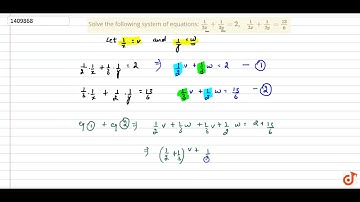 1409868
Solve the following system of equations: 1/2x + 1/3y = 2, 1/3x + 1/2y = 13/6
Let 1/x = v and 1/y = w
1/2 · 1/x + 1/3 · 1/y = 2 ⇒ 1/2 v + 1/3 w = 2 — ①
1/3 · 1/x + 1/2 · 1/y = 13/6 1/3 v + 1/2 w = 13/6 — ②
eq ① + eq ② ⇒ 1/2 v + 1/3 w + 1/3 v + 1/2 w = 2 + 13/6
⇒ (1/2 + 1/3) v +